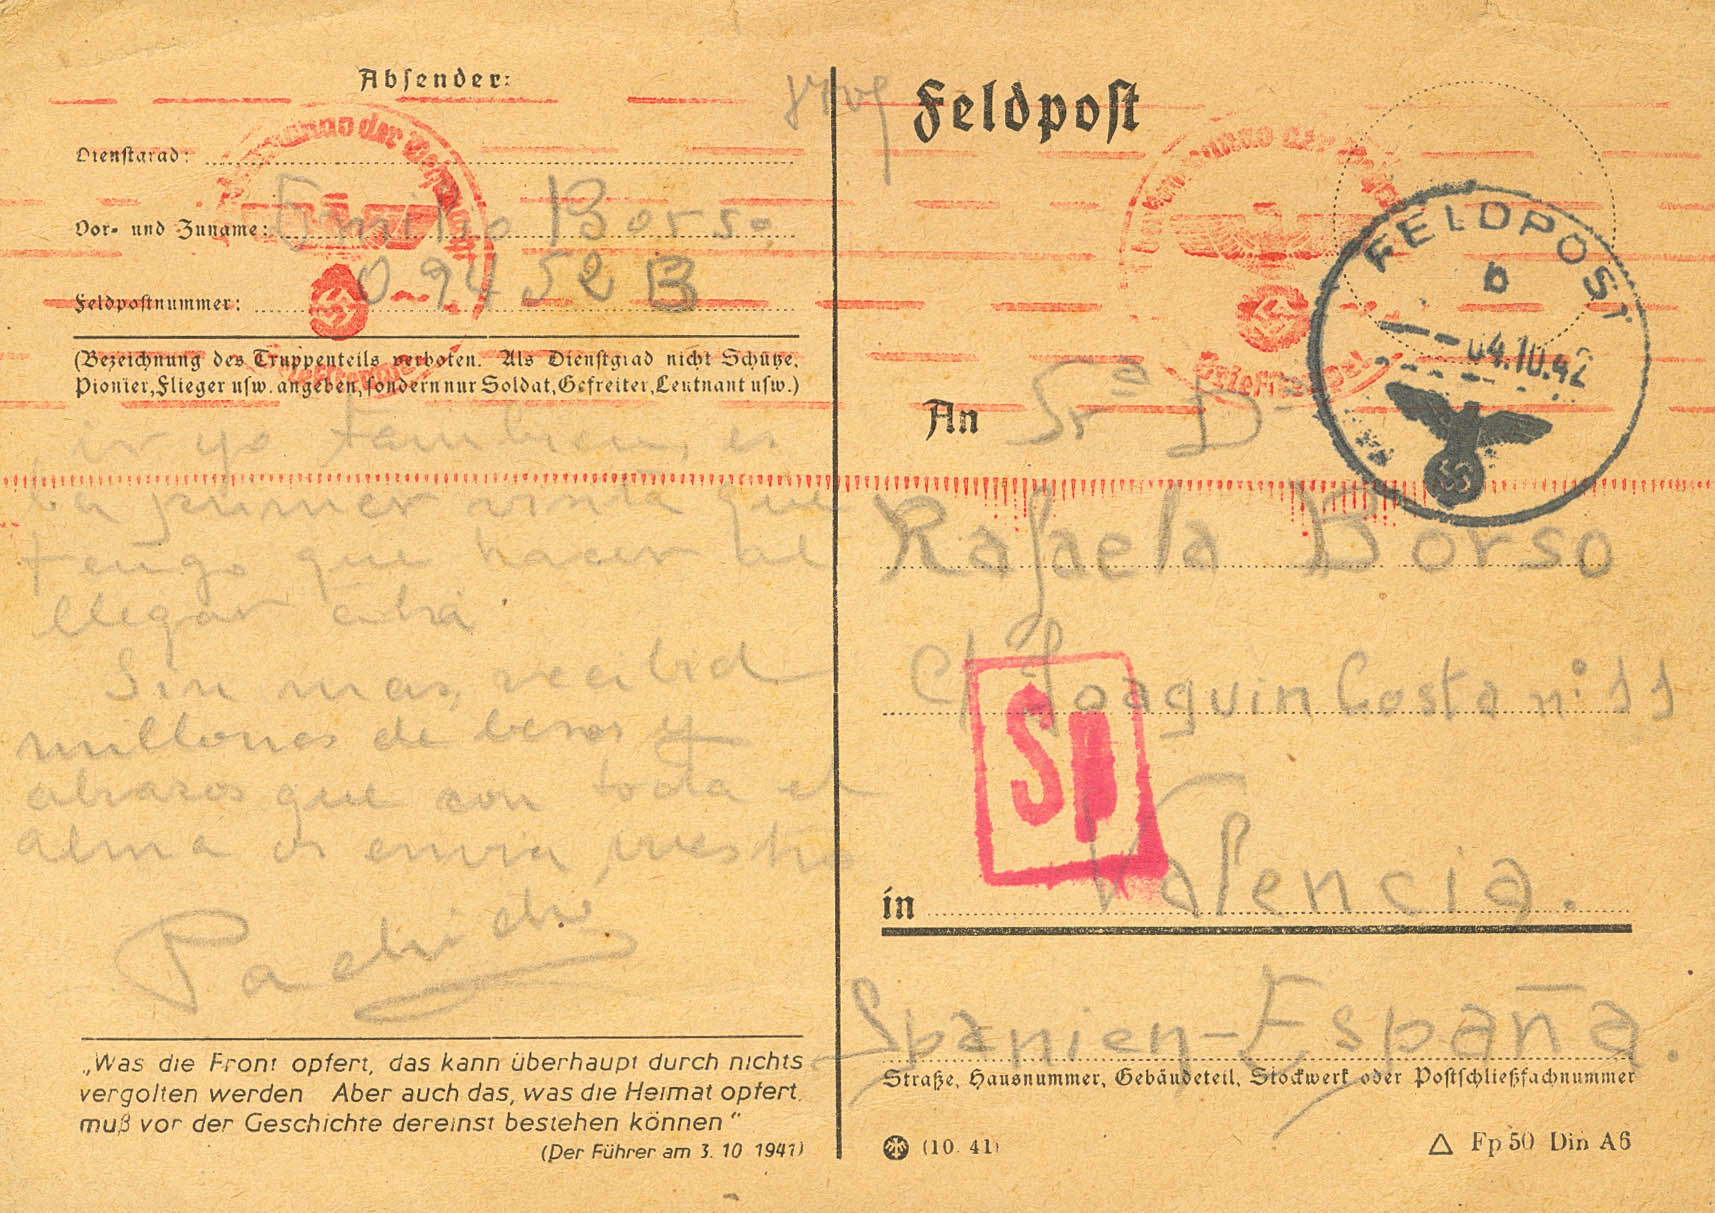 Absender:
Dienstgrad:
Vor- und Zuname: Emilio Borso
Feldpostnummer: 09452 B
(Bezeichnung des Truppenteils verboten. Als Dienstgrad nicht Schütze,
Pionier, Flieger usw. angeben, sondern nur Soldat, Gefreiter, Leutnant usw.)
ir yo tambien, es
la primer visita que
tengo que hacer al
llegar ahi.
Sin mas, recibid
millones de besos y
abrazos que con toda el
alma os envia vuestro
„Was die Front opfert, das kann überhaupt durch nichts
vergolten werden Aber auch das, was die Heimat opfert,
muß vor der Geschichte dereinst bestehen können“
(Der Führer am 3. 10 1941)
Feldpost
FELDPOST
b
04.10.42
An Srª Dª
Rafaela Borso
C/ Joaquin Costa nº 11
Sp
in Valencia.
Spanien-España.
Straße, Hausnummer, Gebäudeteil, Stockwerk oder Postschließfachnummer
(10. 41)
Fp 50 Din A6